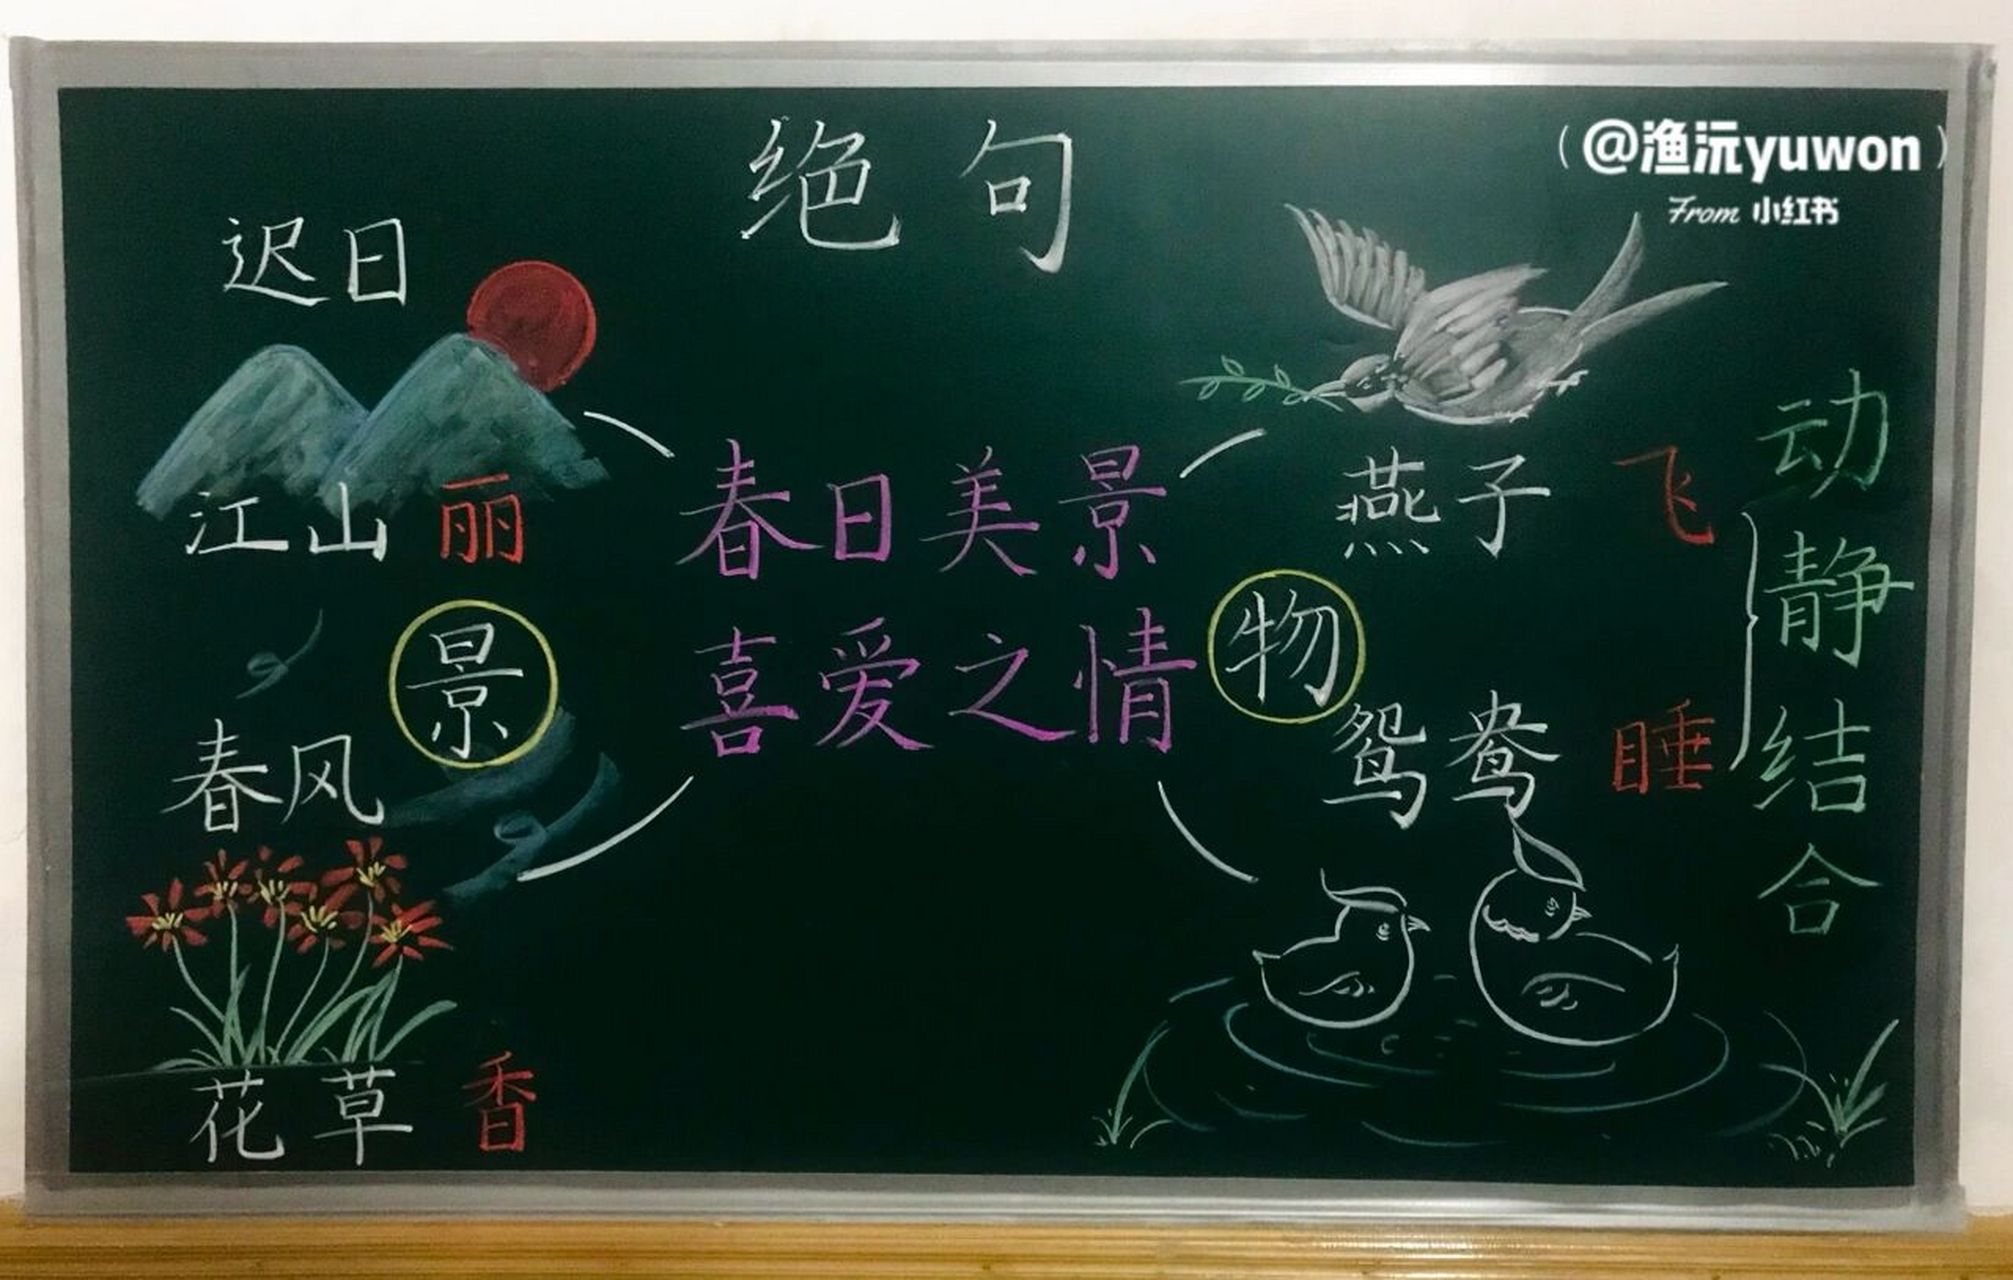 绝句
(@渔沅yuwon)
From 小红书
迟日
江山 丽
景
春风
花草 香
春日美景
喜爱之情
物
燕子 飞
鸳鸯 睡
动静结合